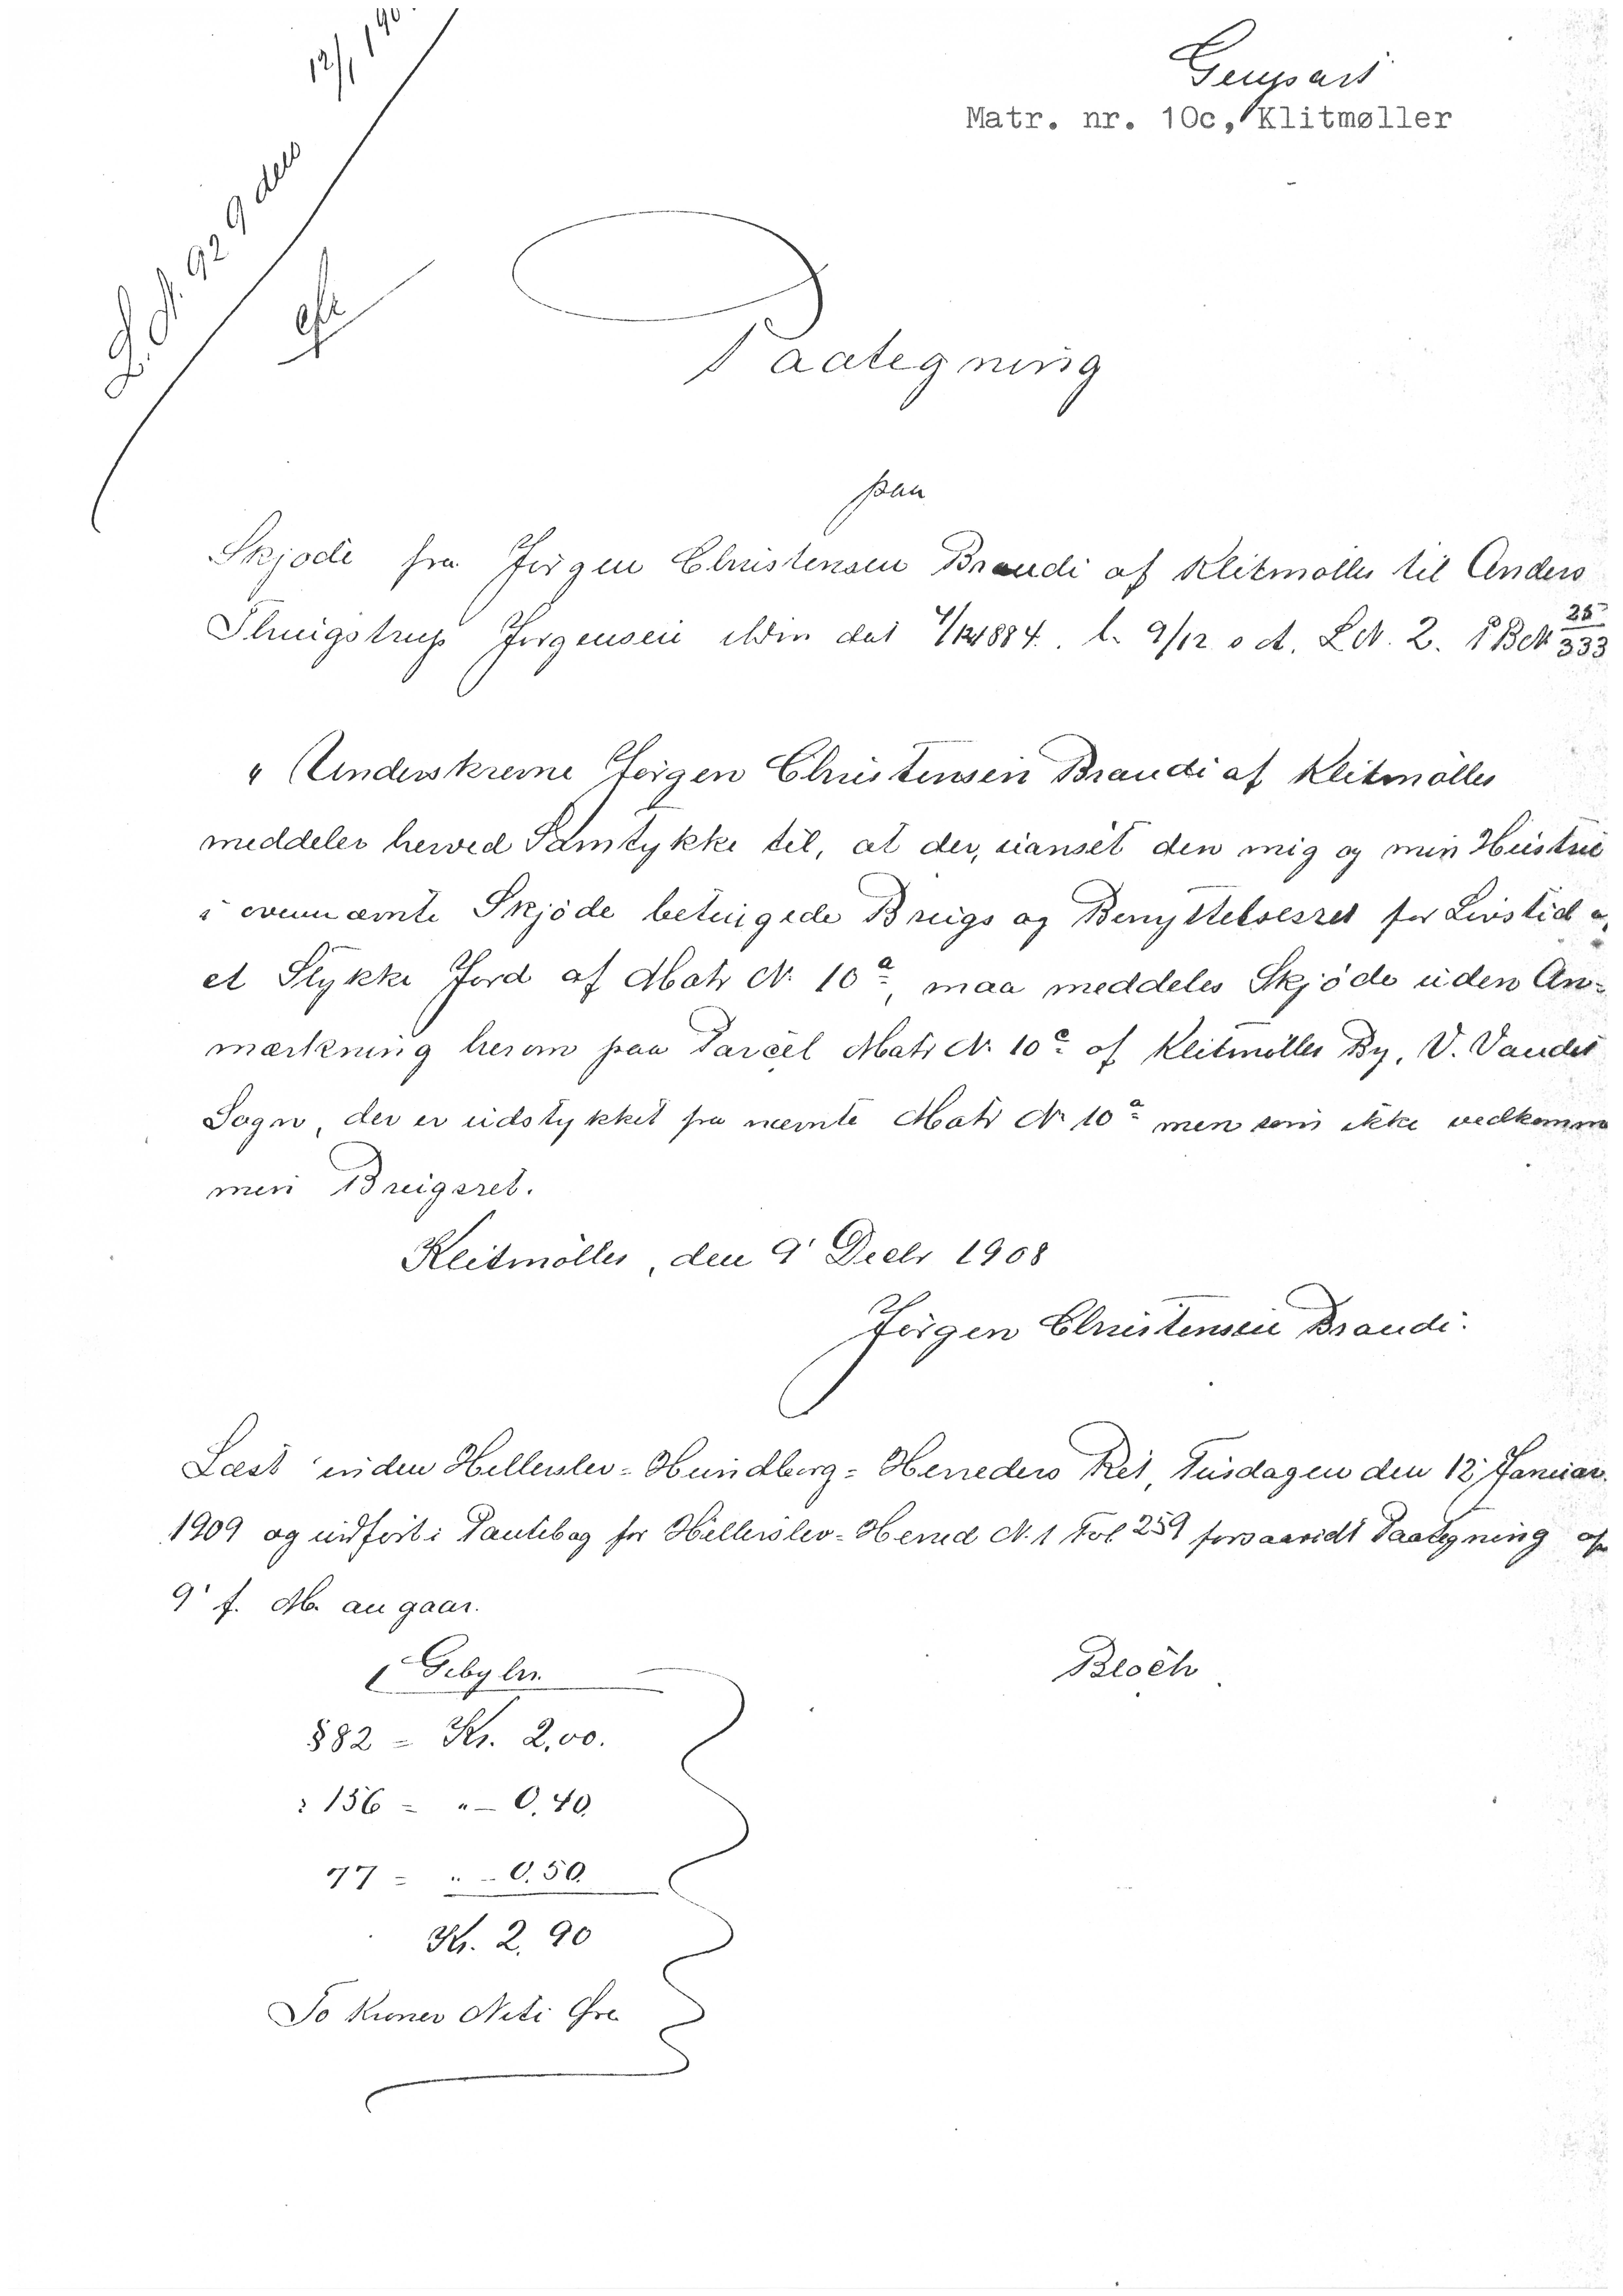 Genpart
Matr. nr. 10c, Klitmøller
12/1
Paategning
paa
Skjøde fra Jørgen Christensen Brandi af Klitmøller til Anders
Jørgensen dat 4/12 1884. l. 9/12 s A. L N. 2. 333
" Underskrevne Jørgen Christensen Brandi af Klitmøller
meddeler herved Samtykke til, at der, uanset den mig og min Hustru
i ovennævnte Skjøde betingede Brugs og Benyttelsesret for Livstid
et Stykke Jord af Matr N. 10a, maa meddeles Skjøde uden An-
mærkning herom paa Parcel Matr N. 10c af Klitmøller By, V. Vandet
Sogn, der er udstykket fra nævnte Matr N. 10a men som ikke vedkomm
min Brugsret.
Klitmøller, den 9' Decbr 1908
Jørgen Christensen Brandi.
Læst inden Hillerslev-Hundborg-Herreders Ret, Tirsdagen den 12' Januar
1909 og indført i Pantebog for Hillerslev-Herred N. 1 Fol 259 forsaavidt Paategning af
9' f. M. angaar.
Gebyler.
Bloch
§ 82 - Kr. 2,00.
: 156 - " - 0,40.
77 - " - 0,50.
Kr. 2,90
To Kroner Niti Øre